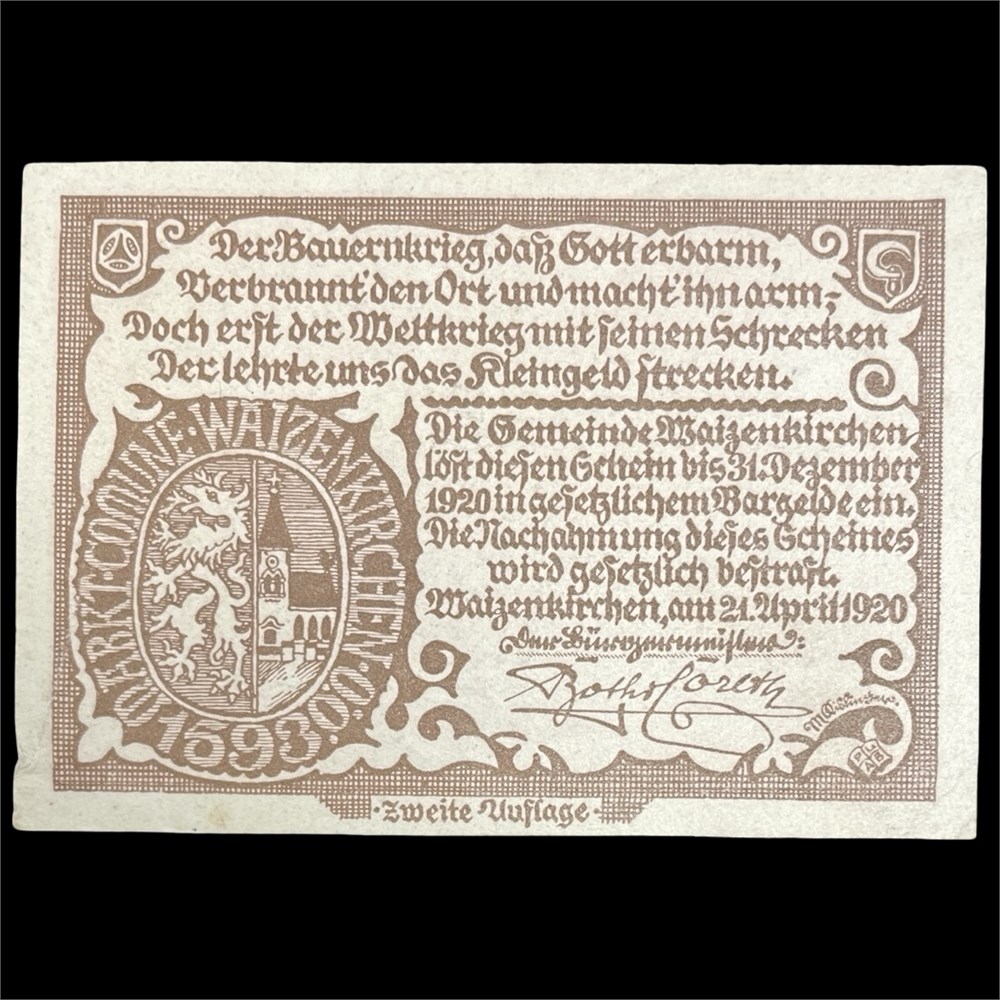 Der Bauernkrieg, daß Gott erbarm,
Verbrannt' den Ort und macht' ihn arm;
Doch erst der Weltkrieg mit seinen Schrecken
Der lehrte uns das Kleingeld strecken.
MARKT·COMMUNE·WAIZENKIRCHEN·O.Ö.
1593
Die Gemeinde Waizenkirchen
löst diesen Schein bis 31. Dezember
1920 in gesetzlichem Bargelde ein.
Die Nachahmung dieses Scheines
wird gesetzlich bestraft.
Waizenkirchen, am 21. April 1920
Der Bürgermeister:
·Zweite Auflage·